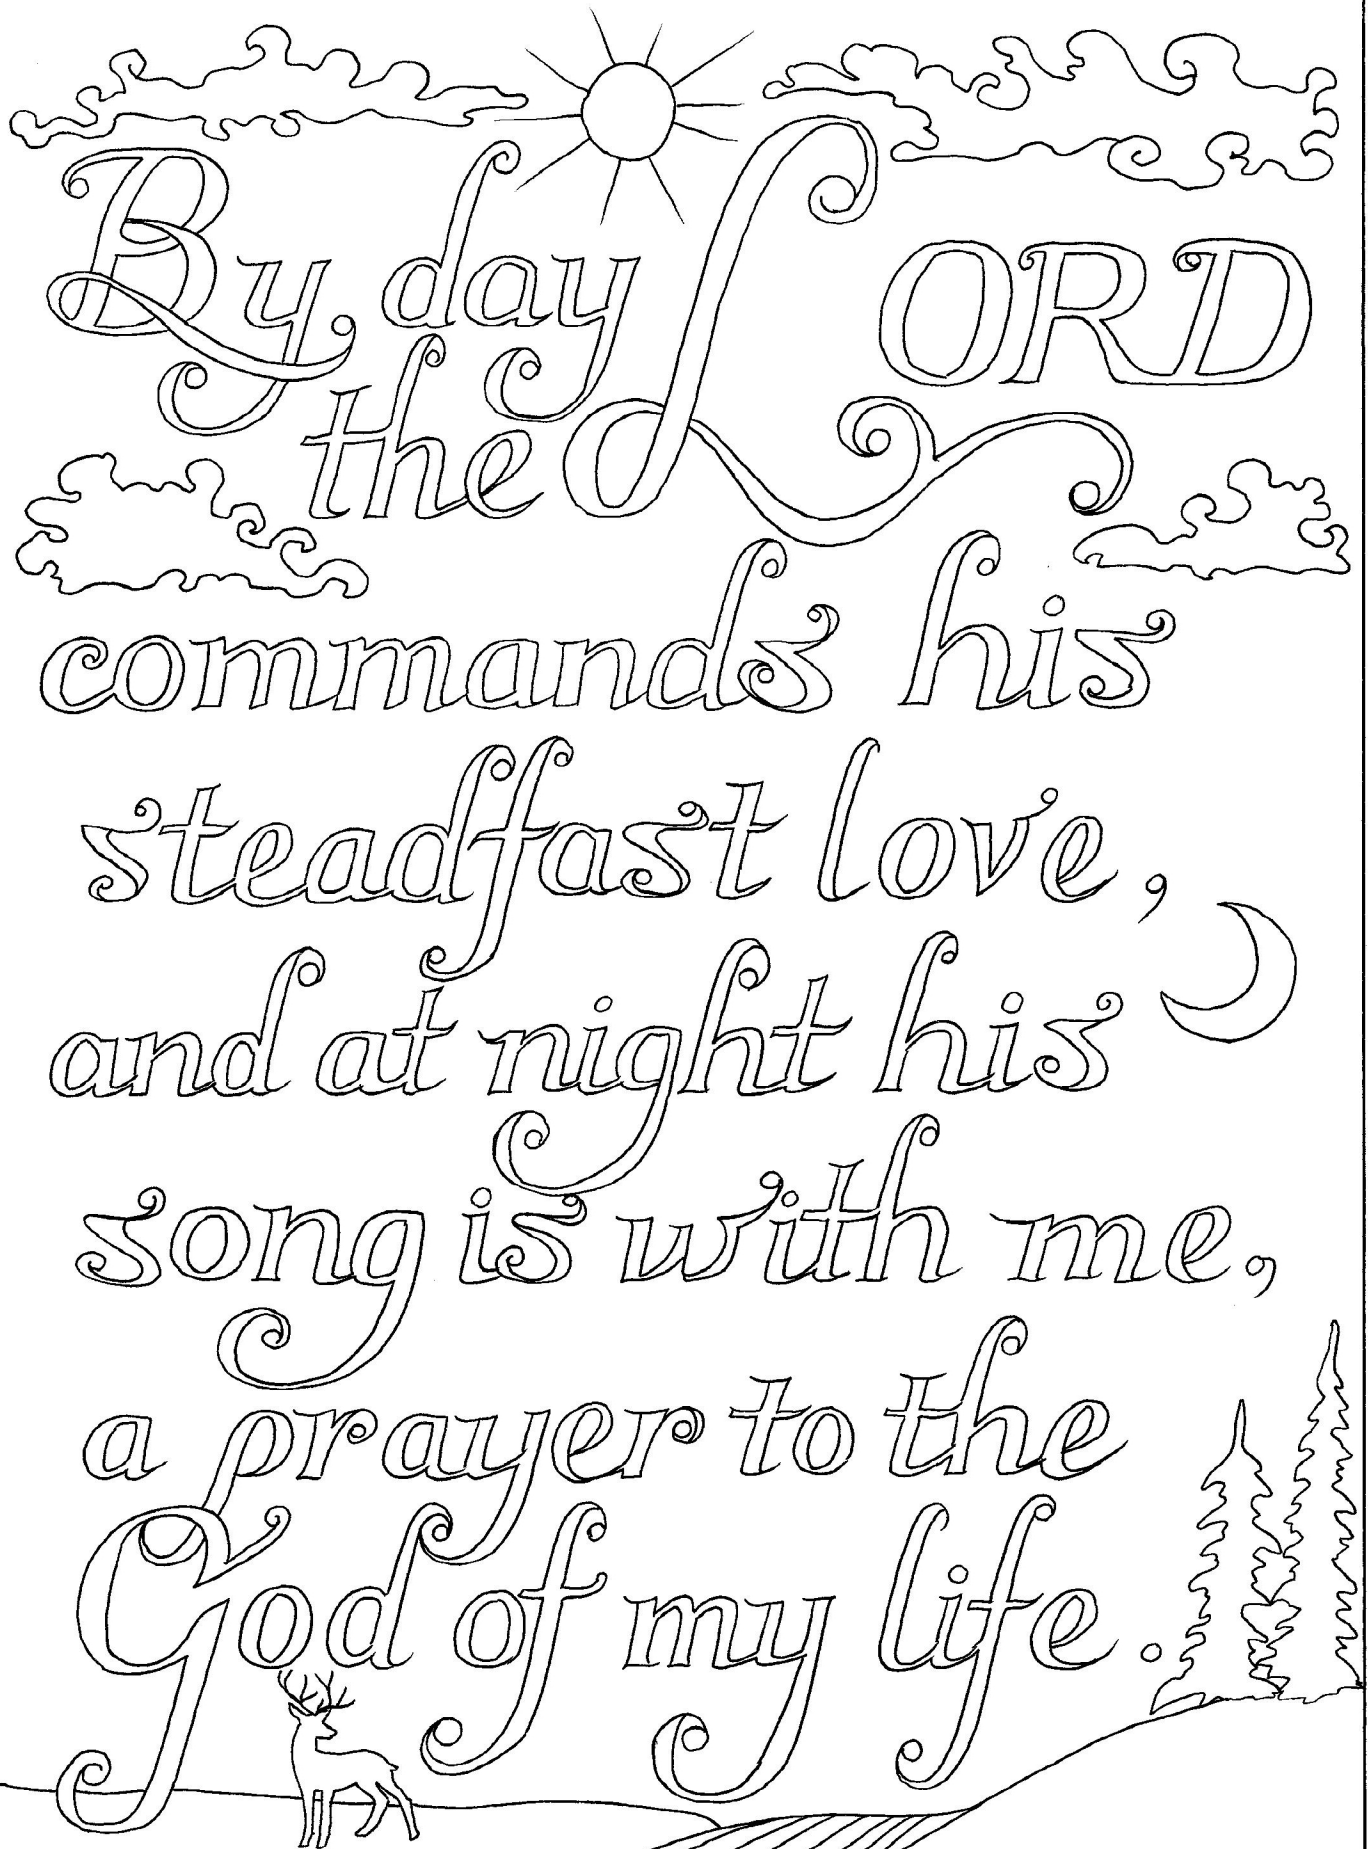 By day
the LORD
commands his
steadfast love,
and at night his
song is with me,
a prayer to the
God of my life.